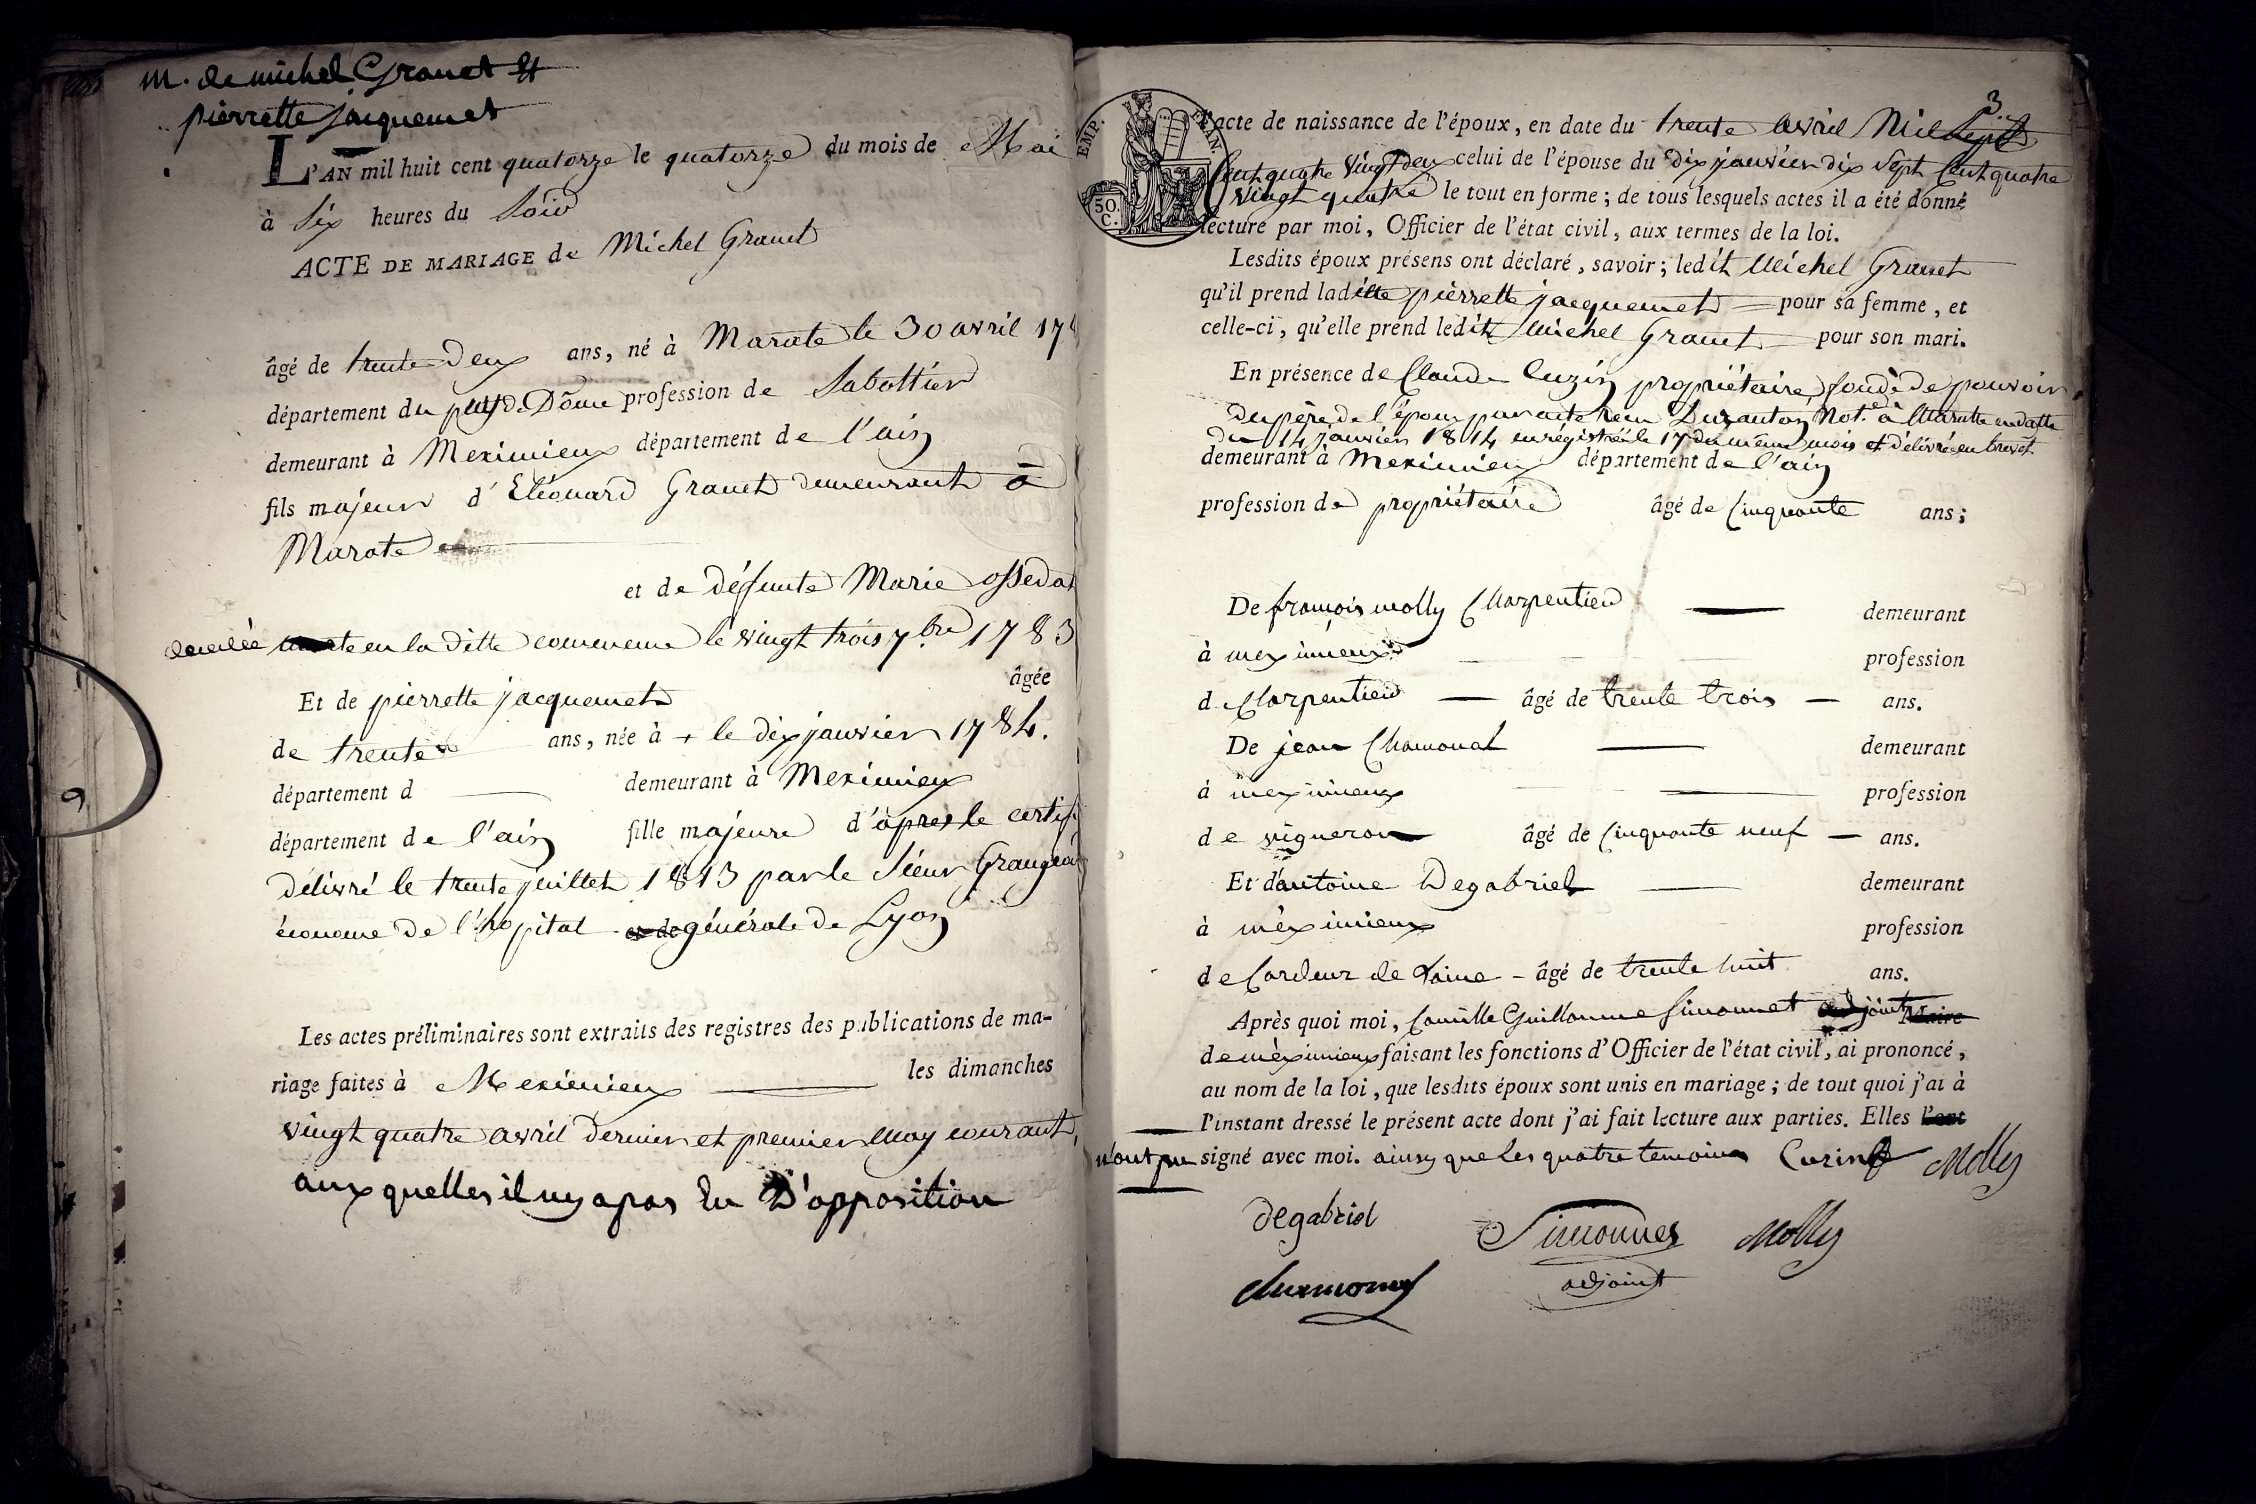 m. de michel Granet Et
pierrette jacquemet
L'AN mil huit cent quatorze le quatorze du mois de Mai
à Six heures du Soir
ACTE DE MARIAGE de Michel Granet
âgé de trente Deux ans, né à Marate le 30 avril 17
département du puy de Dôme profession de Sabottier
demeurant à Meximieux département de l'ain
fils majeur d' Eléonard Granet demeurant à
Marate
et de défunte Marie ossedat
décédée en la ditte commune le vingt trois 7.bre 1783
âgée
Et de pierrette jacquemet
de trente ans, née à + le dix janvier 1784.
département d demeurant à Meximieux
département de l'ain fille majeure d'après le certif
Délivré le trente juillet 1813 par le Sieur
économe de l'hopital générale de Lyon
Les actes préliminaires sont extraits des registres des publications de ma-
riage faites à Meximieux les dimanches
vingt quatre avril dernier et premier may courant,
aux quelles il ny a pas Eu D'opposition
3
EMP. FRAN.
50.
C.
l'acte de naissance de l'époux, en date du trente avril Mil Sept
Cent quatre vingt deux celui de l'épouse du dix janvier dix Sept Cent quatre
vingt quatre le tout en forme ; de tous lesquels actes il a été donné
lecture par moi, Officier de l'état civil, aux termes de la loi.
Lesdits époux présens ont déclaré, savoir ; ledit Michel Granet
qu'il prend laditte pierrette jacquemet pour sa femme, et
celle-ci, qu'elle prend ledit Michel Granet pour son mari.
En présence de Claude Cuzin propriétaire, fondé de pouvoir
du père de l'époux par acte reçu Duranton Not.e à Maratte en datte
du 14 janvier 1814 enrégistrée le 17 du même mois et délivrée en brevet.
demeurant à Meximieux département de l'ain
profession de propriétaire âgé de Cinquante ans ;
De françois molly Charpentier demeurant
à meximieux profession
de Charpentier âgé de trente trois ans.
De jean Chamonal demeurant
à meximieux profession
de vigneron âgé de Cinquante neuf ans.
Et d'antoine Degabriel demeurant
à mèximieux profession
de Cardeur de Laine - âgé de trente huit ans.
Après quoi moi, Camille Guillaume Simonnet adjoint Maire
de mèximieux faisant les fonctions d'Officier de l'état civil, ai prononcé,
au nom de la loi, que lesdits époux sont unis en mariage ; de tout quoi j'ai à
l'instant dressé le présent acte dont j'ai fait lecture aux parties. Elles l'ont
n'ont pu signé avec moi. ainsy que les quatre temoins Cuzin Molly
degabriel Simonnet Molly
adjoint